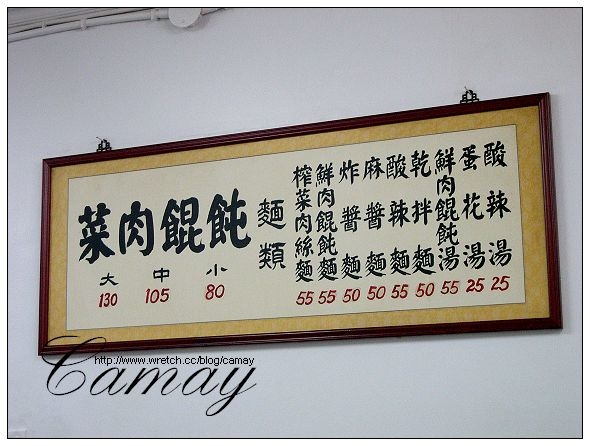 菜肉餛飩
大 中 小
130 105 80
麵類
榨菜肉絲麵 55
鮮肉餛飩麵 55
炸醬麵 50
麻醬麵 50
酸辣麵 55
乾拌麵 50
鮮肉餛飩湯 55
蛋花湯 25
酸辣湯 25
http://www.wretch.cc/blog/camay
Camay